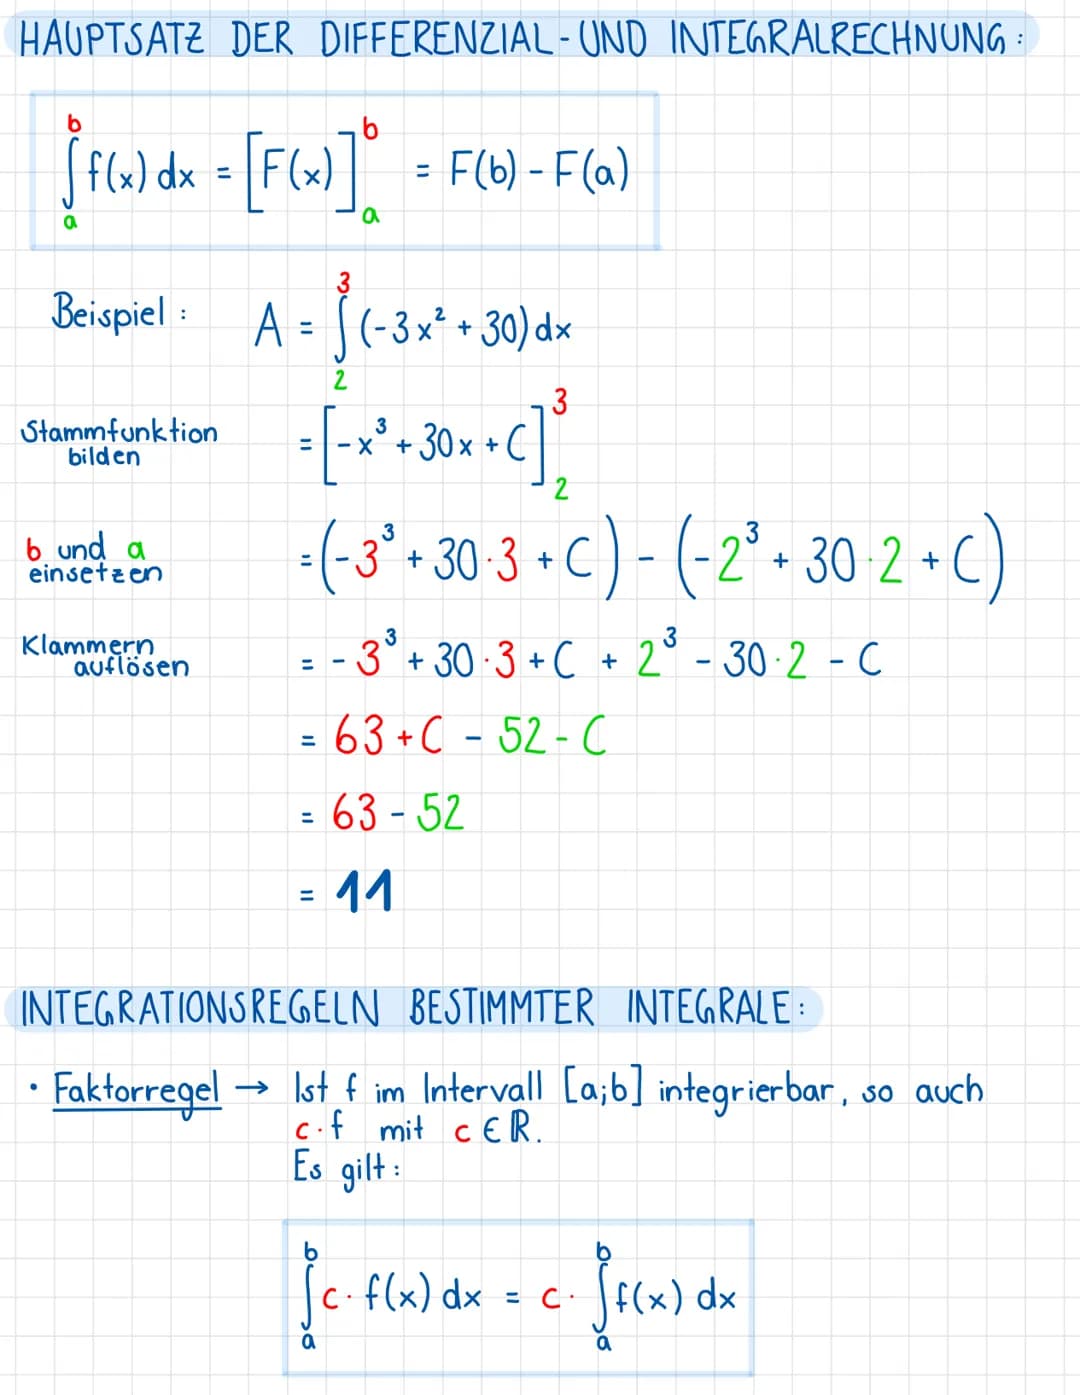 HAUPTSATZ DER DIFFERENZIAL-UND INTEGRALRECHNUNG:
∫_a^b f(x) dx = [F(x)]_a^b = F(b) - F(a)
Beispiel: A = ∫_2^3 (-3x² + 30) dx
Stammfunktion bilden = [-x³ + 30x + C]_2^3
b und a einsetzen = (-3³ + 30·3 + C) - (-2³ + 30·2 + C)
Klammern auflösen = -3³ + 30·3 + C + 2³ - 30·2 - C
= 63 + C - 52 - C
= 63 - 52
= 11
INTEGRATIONSREGELN BESTIMMTER INTEGRALE:
• Faktorregel → Ist f im Intervall [a;b] integrierbar, so auch
c·f mit c∈ℝ.
Es gilt:
∫_a^b c·f(x) dx = c·∫_a^b f(x) dx